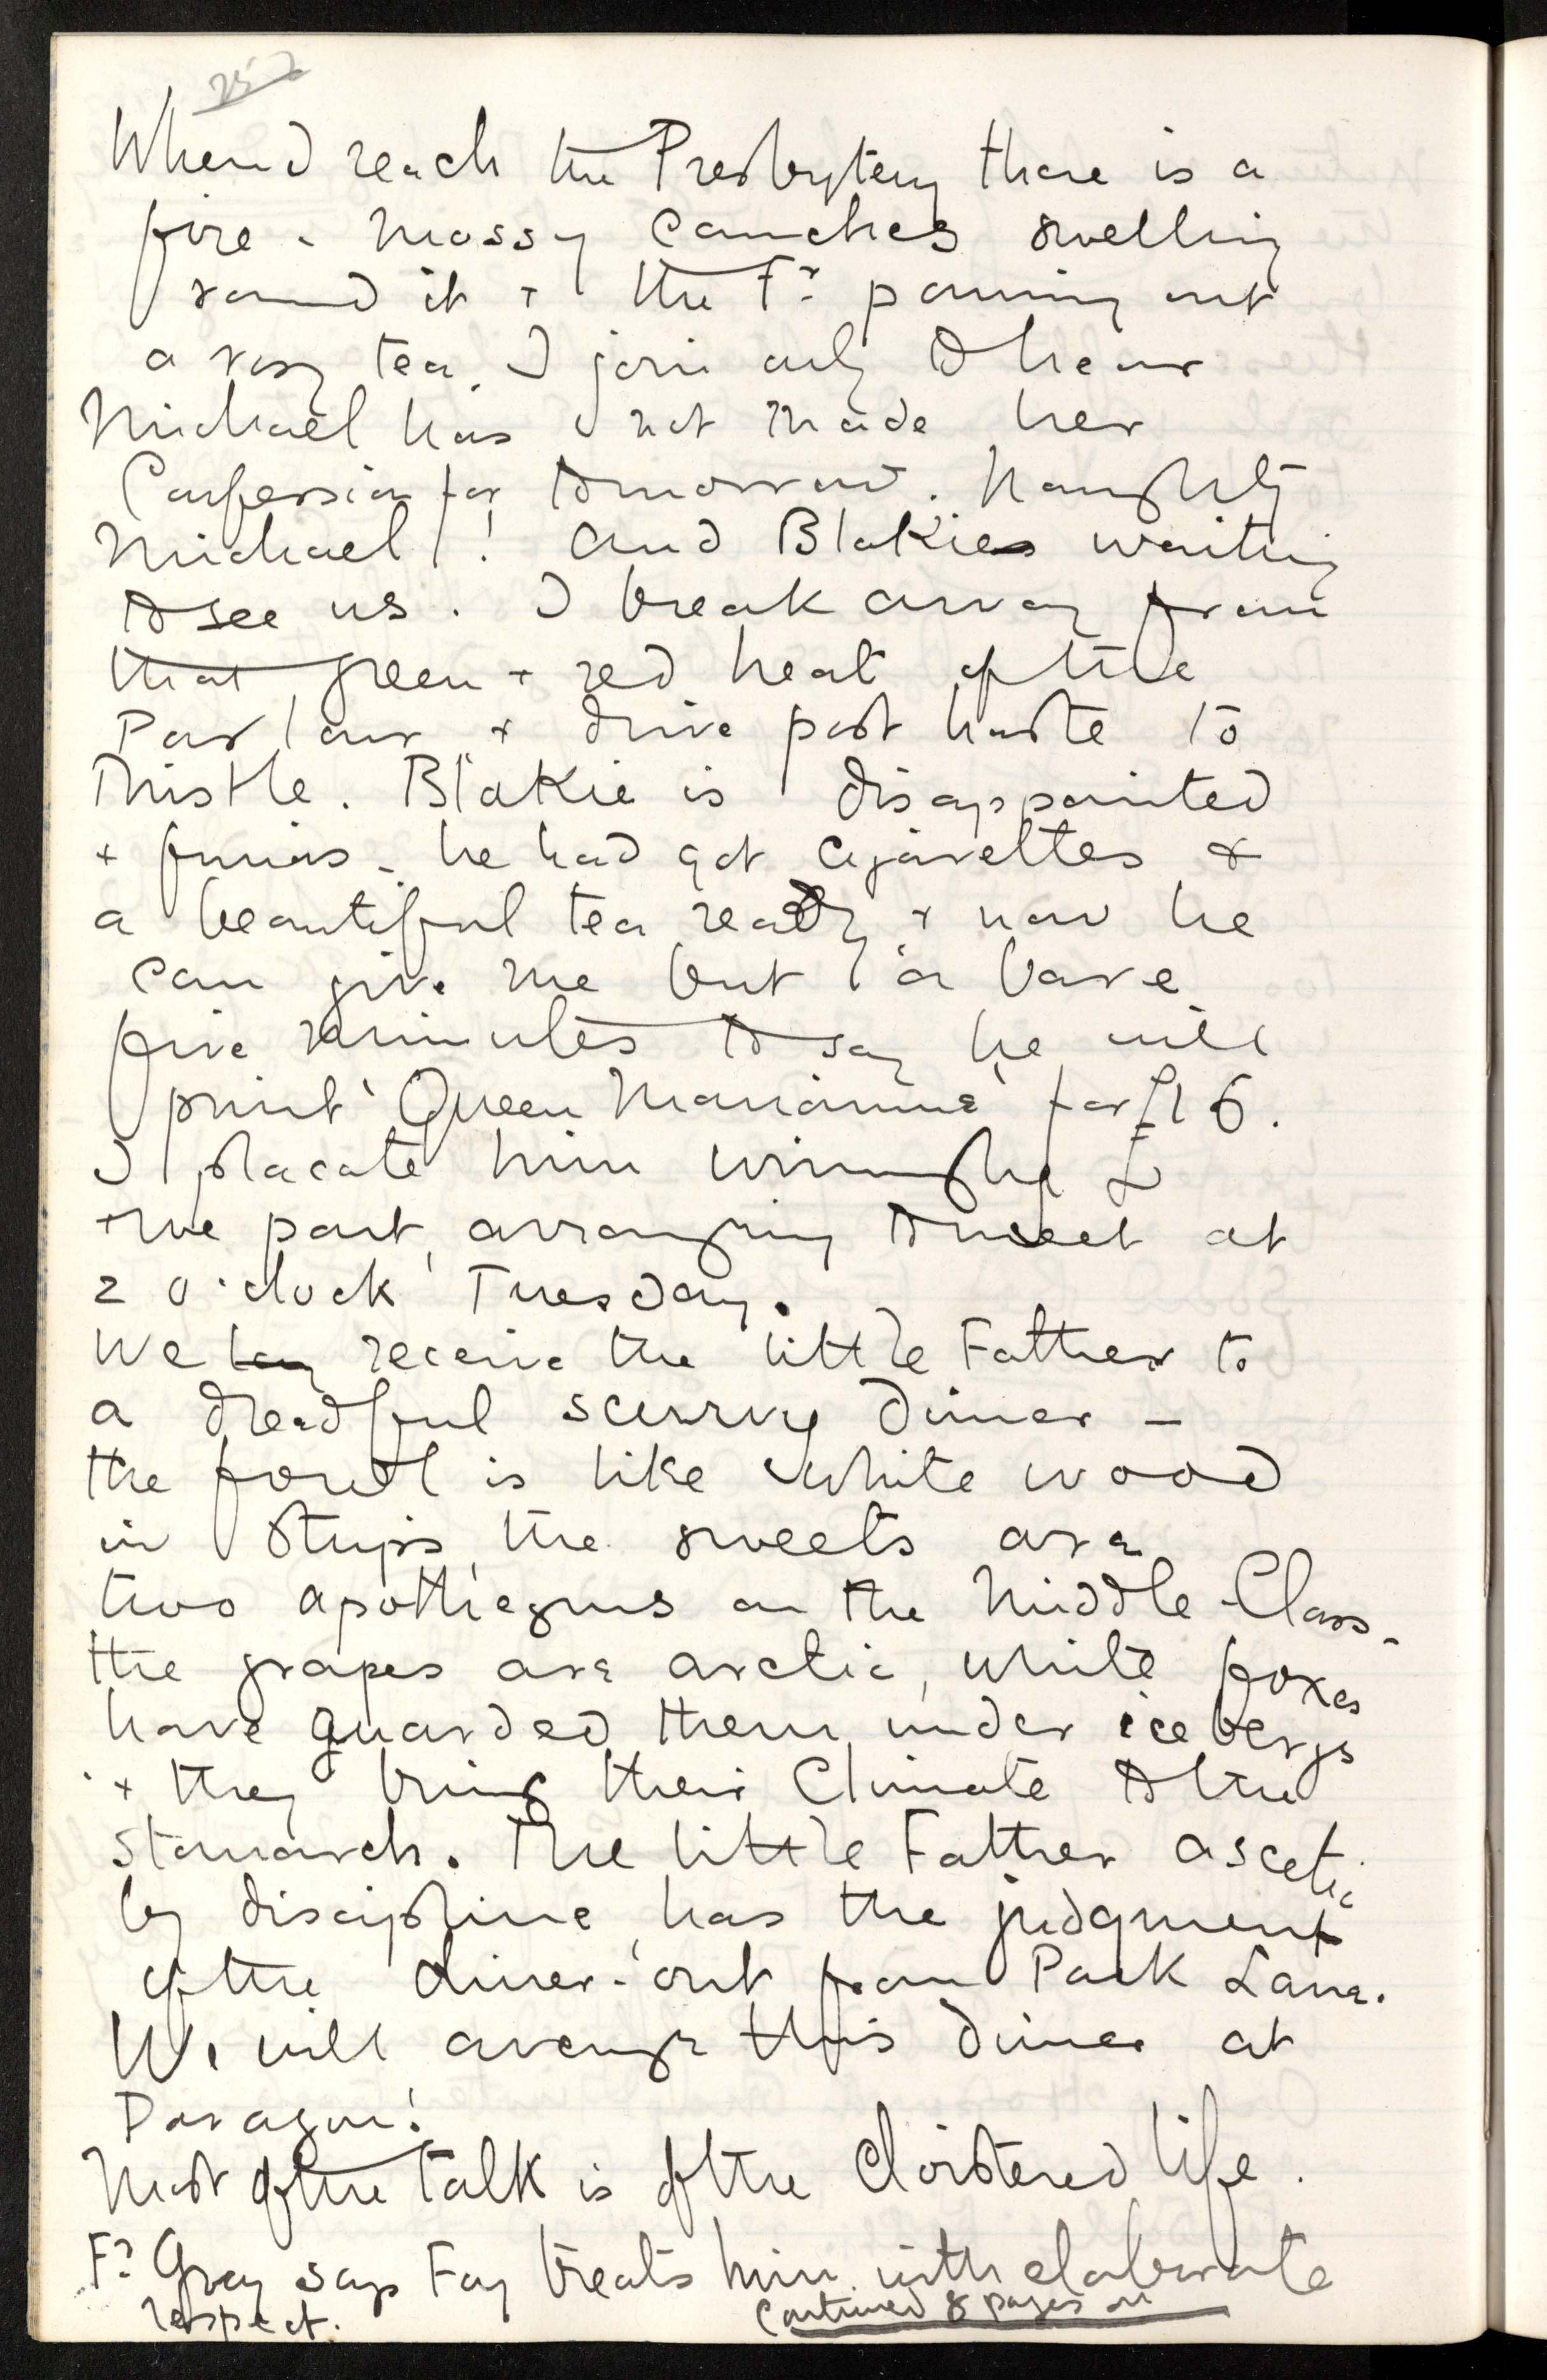 252
When I reach the Presbytery there is a
fire - mossy couches swelling
round it + the Fr. pouring out
a rosy tea. I join only to hear
Michael has not made her
Confession for tomorrow. Naughty
Michael! And Blakie waiting
to see us. I break away from
that green + red heat of the
Parlour + drive post haste to
Thistle. Blakie is disappointed
+ furious - he had got cigarettes &
a beautiful tea ready + now he
can give me but a bare
five minutes to say he will
print 'Queen Mariamne' for £16.
I placate him winningly
+ we part, arranging to meet at
2 o'clock Tuesday.
We receive the little Father to
a dreadful scurvy dinner —
the fowl is like white wood
in strips, the sweets are
two apothegms on the Middle-Class -
the grapes are arctic, white foxes
have guarded them under icebergs
+ they bring their Climate to the
stomach. The little Father ascetic
by discipline, has the judgment
of the diner-out from Park Lane.
We will avenge this dinner at
Paragon!
Most of the talk is of the Cloistered life.
Fr Gray says Fay treats him with elaborate
respect.
Continued 8 pages on